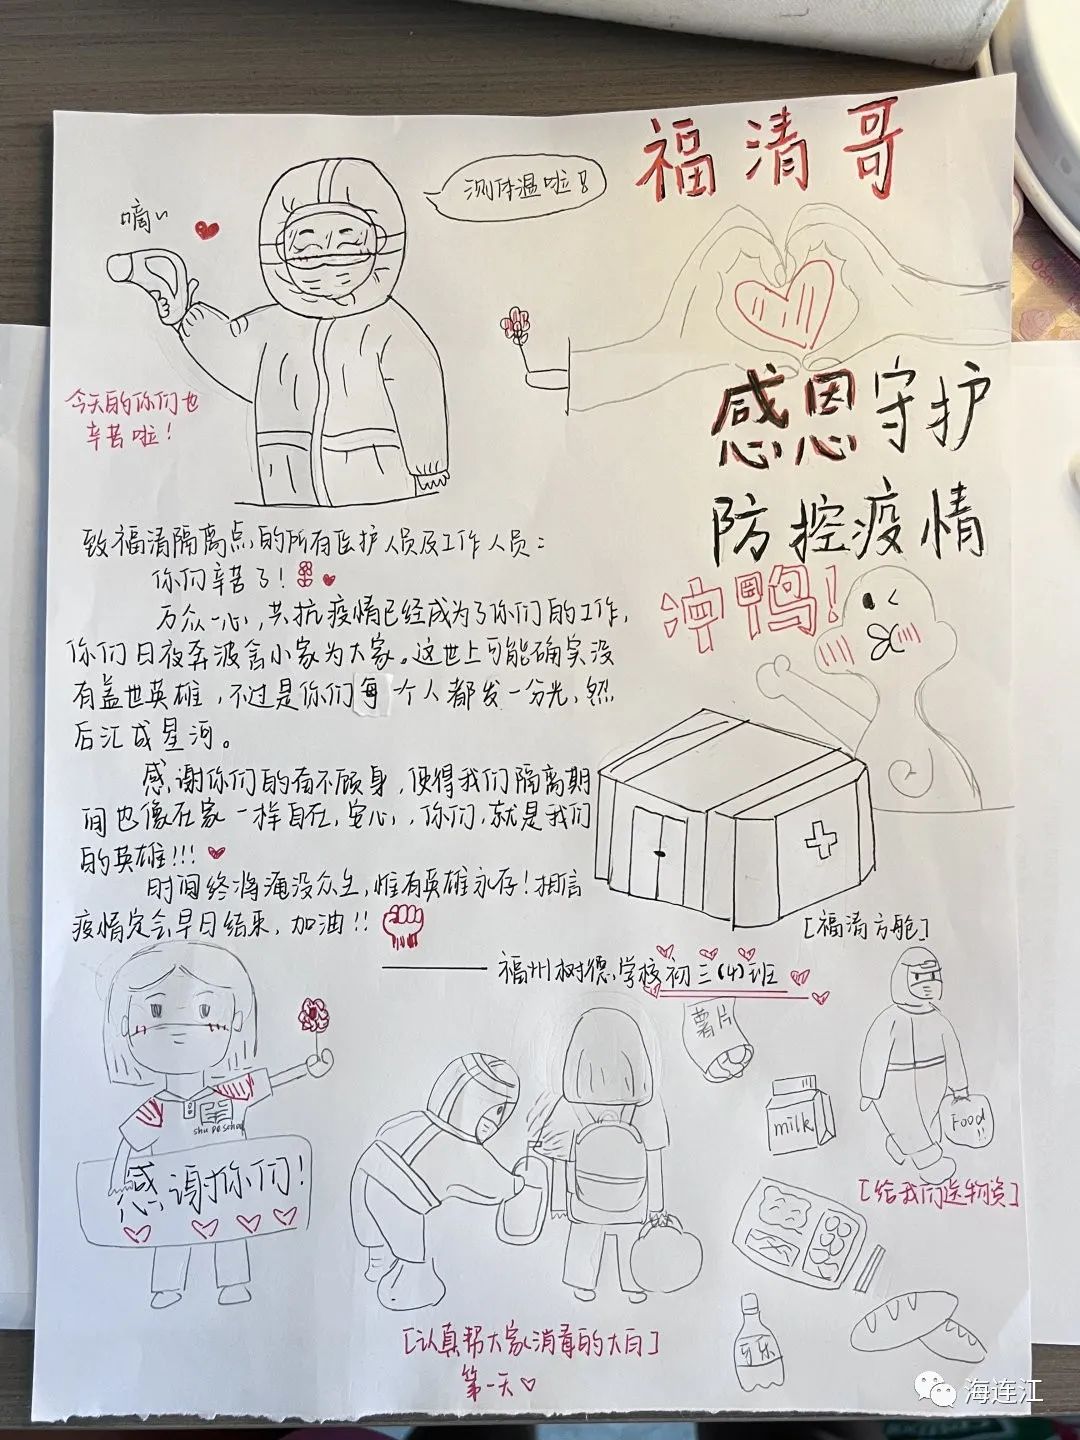 福清哥
测体温啦!
嘀~
今天的你们也
辛苦啦!
感恩守护
防控疫情
冲鸭!
致福清隔离点的所有医护人员及工作人员:
你们辛苦了!
万众一心,共抗疫情已经成为了你们的工作,
你们日夜奔波舍小家为大家。这世上可能确实没
有盖世英雄,不过是你们每个人都发一分光,然
后汇成星河。
感谢你们的奋不顾身,使得我们隔离期
间也像在家一样自在,安心,你们,就是我们
的英雄!!!
时间终将淹没众生,惟有英雄永存!相信
疫情定会早日结束,加油!!
[福清方舱]
——福州树德学校初三(4)班
薯片
milk
Food!!
[给我们送物资]
shu de school
感谢你们!
可乐
[认真帮大家消毒的大白]
第一天
海连江